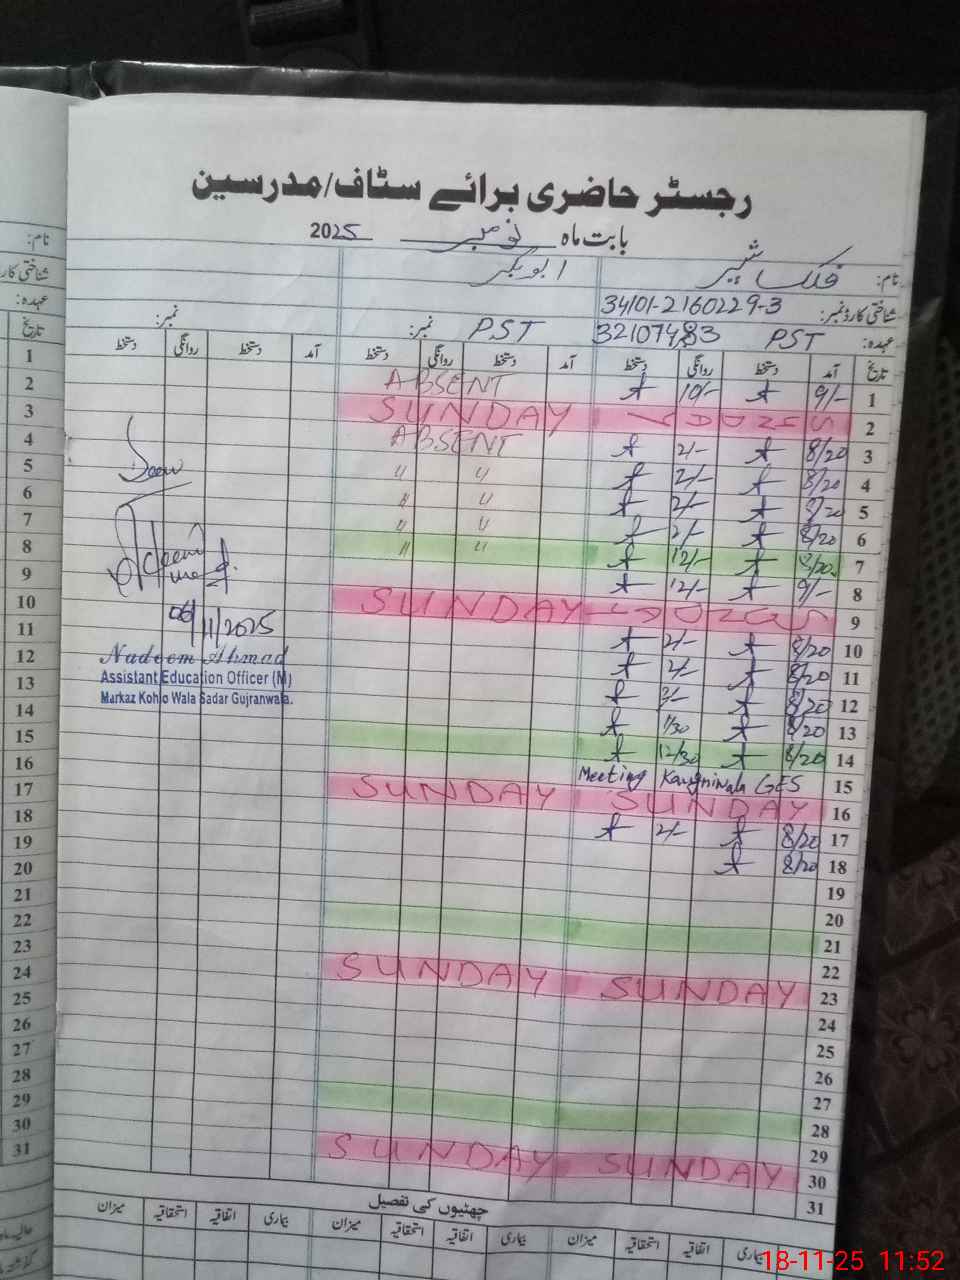 رجسٹر حاضری برائے سٹاف/مدرسین
بابت ماہ نومبر 2025
نام: ابوبکر
شناختی کارڈ نمبر: 34101-2160229-3
عہدہ: PST 32107483 نمبر: PST نمبر:
تاریخ آمد دستخط روانگی دستخط آمد دستخط روانگی دستخط آمد دستخط روانگی دستخط
1 9/- 10/- ABSENT
2 SUNDAY SUNDAY
3 8/20 2/- ABSENT
4 8/20 2/- " "
5 8/20 2/- " "
6 8/20 2/- " "
7 8/20 12/- " "
8 9/- 12/-
9 SUNDAY SUNDAY
10 8/20 2/-
11 8/20 2/-
12 8/20 2/-
13 8/20 1/30
14 8/20 12/30
15 Meeting GES
16 SUNDAY SUNDAY
17 8/20 2/-
18 8/20
19
20
21
22
23 SUNDAY SUNDAY
24
25
26
27
28
29
30 SUNDAY SUNDAY
31
06/11/2025
Nadeem Ahmad
Assistant Education Officer (M)
Markaz Kohlo Wala Sadar Gujranwala.
چھٹیوں کی تفصیل
بیماری اتفاقیہ استحقاقیہ میزان بیماری اتفاقیہ استحقاقیہ میزان بیماری اتفاقیہ استحقاقیہ میزان
نام:
شناختی کارڈ
عہدہ:
تاریخ
1
2
3
4
5
6
7
8
9
10
11
12
13
14
15
16
17
18
19
20
21
22
23
24
25
26
27
28
29
30
31
18-11-25 11:52